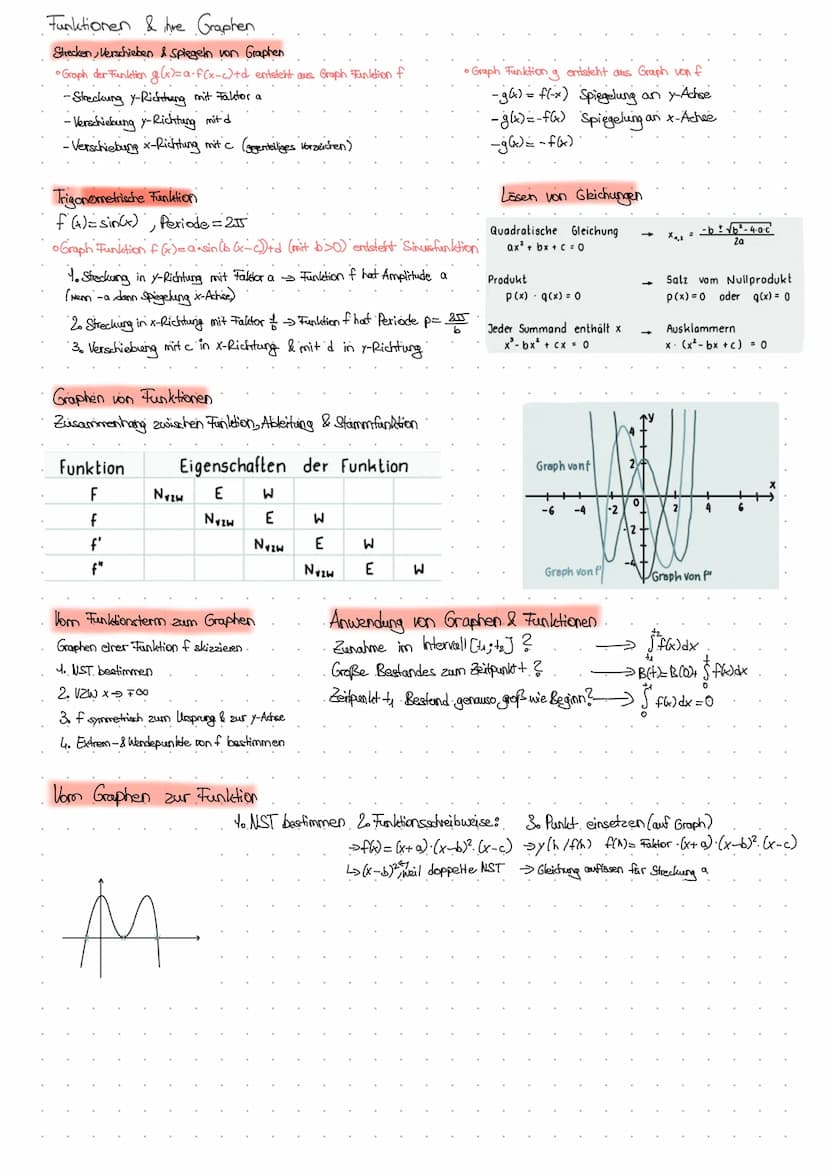 Funktionen & ihre Graphen
Strecken, Verschieben & Spiegeln von Graphen
° Graph der Funktion g(x)=a·f(x-c)+d entsteht aus Graph Funktion f
- Streckung y-Richtung mit Faktor a
- Verschiebung y-Richtung mit d
- Verschiebung x-Richtung mit c (gegenteiliges Vorzeichen)
° Graph Funktion g entsteht aus Graph von f
- g(x) = f(-x) Spiegelung an y-Achse
- g(x) = -f(x) Spiegelung an x-Achse
- g(x) = -f(x)
Trigonometrische Funktion
f(x)=sin(x), Periode=2π
° Graph Funktion f(x)=a·sin(b(x-c))+d (mit b>0) entsteht Sinusfunktion
1. Streckung in y-Richtung mit Faktor a → Funktion f hat Amplitude a
(wenn -a dann Spiegelung x-Achse)
2. Streckung in x-Richtung mit Faktor 1/b → Funktion f hat Periode p= 2π/b
3. Verschiebung mit c in x-Richtung & mit d in y-Richtung
Lösen von Gleichungen
Quadratische Gleichung → x₁,₂ = -b ± √b² - 4·a·c / 2a
ax² + bx + c = 0
Produkt → Satz vom Nullprodukt
p(x) · q(x) = 0 p(x) = 0 oder q(x) = 0
Jeder Summand enthält x → Ausklammern
x³ - bx² + cx = 0 x · (x² - bx + c) = 0
Graphen von Funktionen
Zusammenhang zwischen Funktion, Ableitung & Stammfunktion
Funktion Eigenschaften der Funktion
F N_VZW E W
f N_VZW E W
f' N_VZW E W
f" N_VZW E W
y
4
Graph von f 2
x
-6 -4 -2 0 2 4 6
-2
-4
Graph von f' Graph von f"
Vom Funktionsterm zum Graphen
Graphen einer Funktion f skizzieren
1. NST bestimmen
2. VZW x→ ∓∞
3. f symmetrisch zum Ursprung & zur y-Achse
4. Extrem- & Wendepunkte von f bestimmen
Anwendung von Graphen & Funktionen
Zunahme im Intervall [t₁; t₂] ? → ∫ₜ₁^t₂ f(x)dx
Große Bestandes zum Zeitpunkt t ? → B(t)=B(0)+ ∫₀^t f(x)dx
Zeitpunkt t₁ Bestand genauso groß wie Beginn? → ∫₀ f(x)dx = 0
Vom Graphen zur Funktion
1. NST bestimmen 2. Funktionsschreibweise: 3. Punkt einsetzen (auf Graph)
→ f(x) = (x+a)·(x-b)²·(x-c) → y(h/f(h) f(h)= Faktor ·(x+a)·(x-b)²·(x-c)
↳ (x-b)², weil doppelte NST → Gleichung auflösen für Streckung a